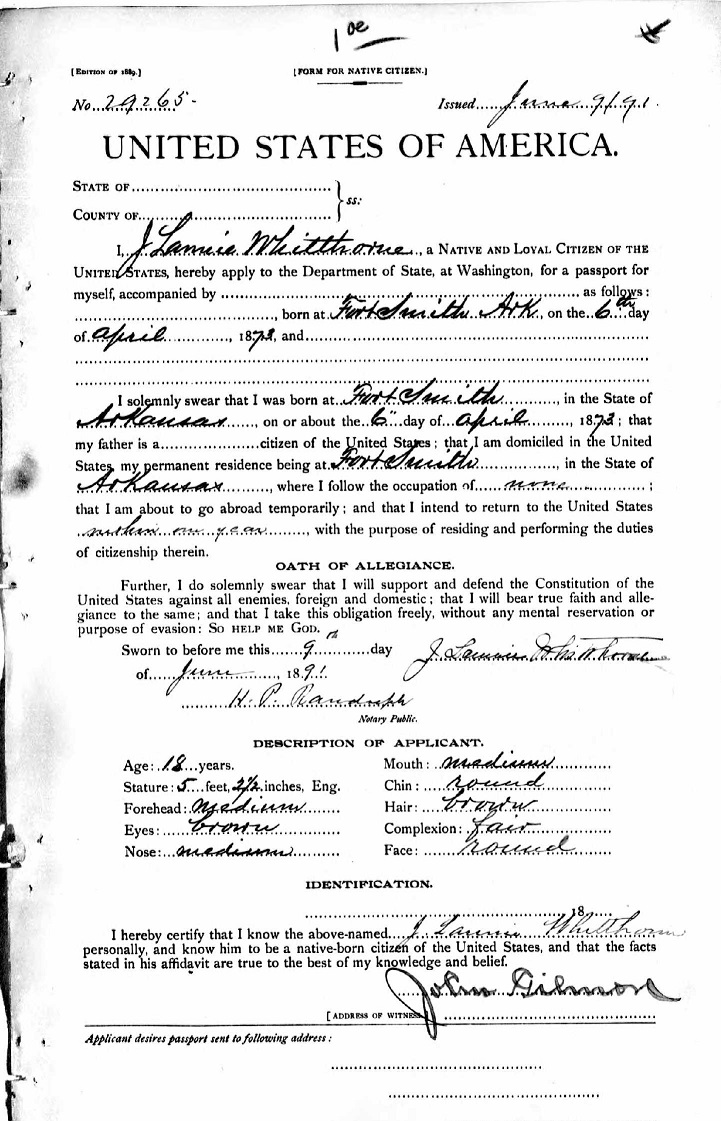 1 oe
[EDITION OF 1889.] [FORM FOR NATIVE CITIZEN.]
No. 29265- Issued June 9/91.
UNITED STATES OF AMERICA.
STATE OF
COUNTY OF } ss:
I, J Lannie Whitthorne, a NATIVE AND LOYAL CITIZEN OF THE
UNITED STATES, hereby apply to the Department of State, at Washington, for a passport for
myself, accompanied by as follows:
, born at Fort Smith Ark, on the 6th day
of April, 1873, and
I solemnly swear that I was born at Fort Smith, in the State of
Arkansas, on or about the 6" day of April, 1873; that
my father is a citizen of the United States; that I am domiciled in the United
States, my permanent residence being at Fort Smith, in the State of
Arkansas, where I follow the occupation of none;
that I am about to go abroad temporarily; and that I intend to return to the United States
within one year, with the purpose of residing and performing the duties
of citizenship therein.
OATH OF ALLEGIANCE.
Further, I do solemnly swear that I will support and defend the Constitution of the
United States against all enemies, foreign and domestic; that I will bear true faith and alle-
giance to the same; and that I take this obligation freely, without any mental reservation or
purpose of evasion: SO HELP ME GOD.
Sworn to before me this 9th day J Lannie Whitthorne
of June, 1891.
H. P. Randolph
Notary Public.
DESCRIPTION OF APPLICANT.
Age: 18 years. Mouth: medium
Stature: 5 feet, 2½ inches, Eng. Chin: round
Forehead: Medium Hair: brown
Eyes: brown Complexion: fair
Nose: medium Face: round
IDENTIFICATION.
, 18
I hereby certify that I know the above-named J. Lannie Whitthorne
personally, and know him to be a native-born citizen of the United States, and that the facts
stated in his affidavit are true to the best of my knowledge and belief.
John Gilmore
[ADDRESS OF WITNESS]
Applicant desires passport sent to following address: